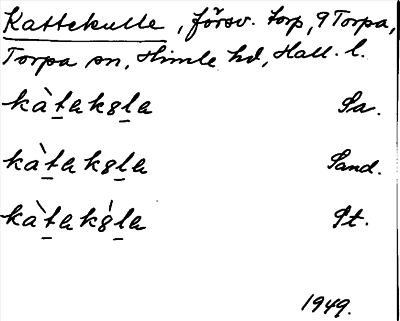 Kattekulle, försv. torp, 9 Torpa,
Torpa sn, Himle hd, Hall. l.
kàt̲aks̲l̲a Sa.
kàt̲akȣl̲a Sand.
kàt̲akȣ́l̲a St.
1949.